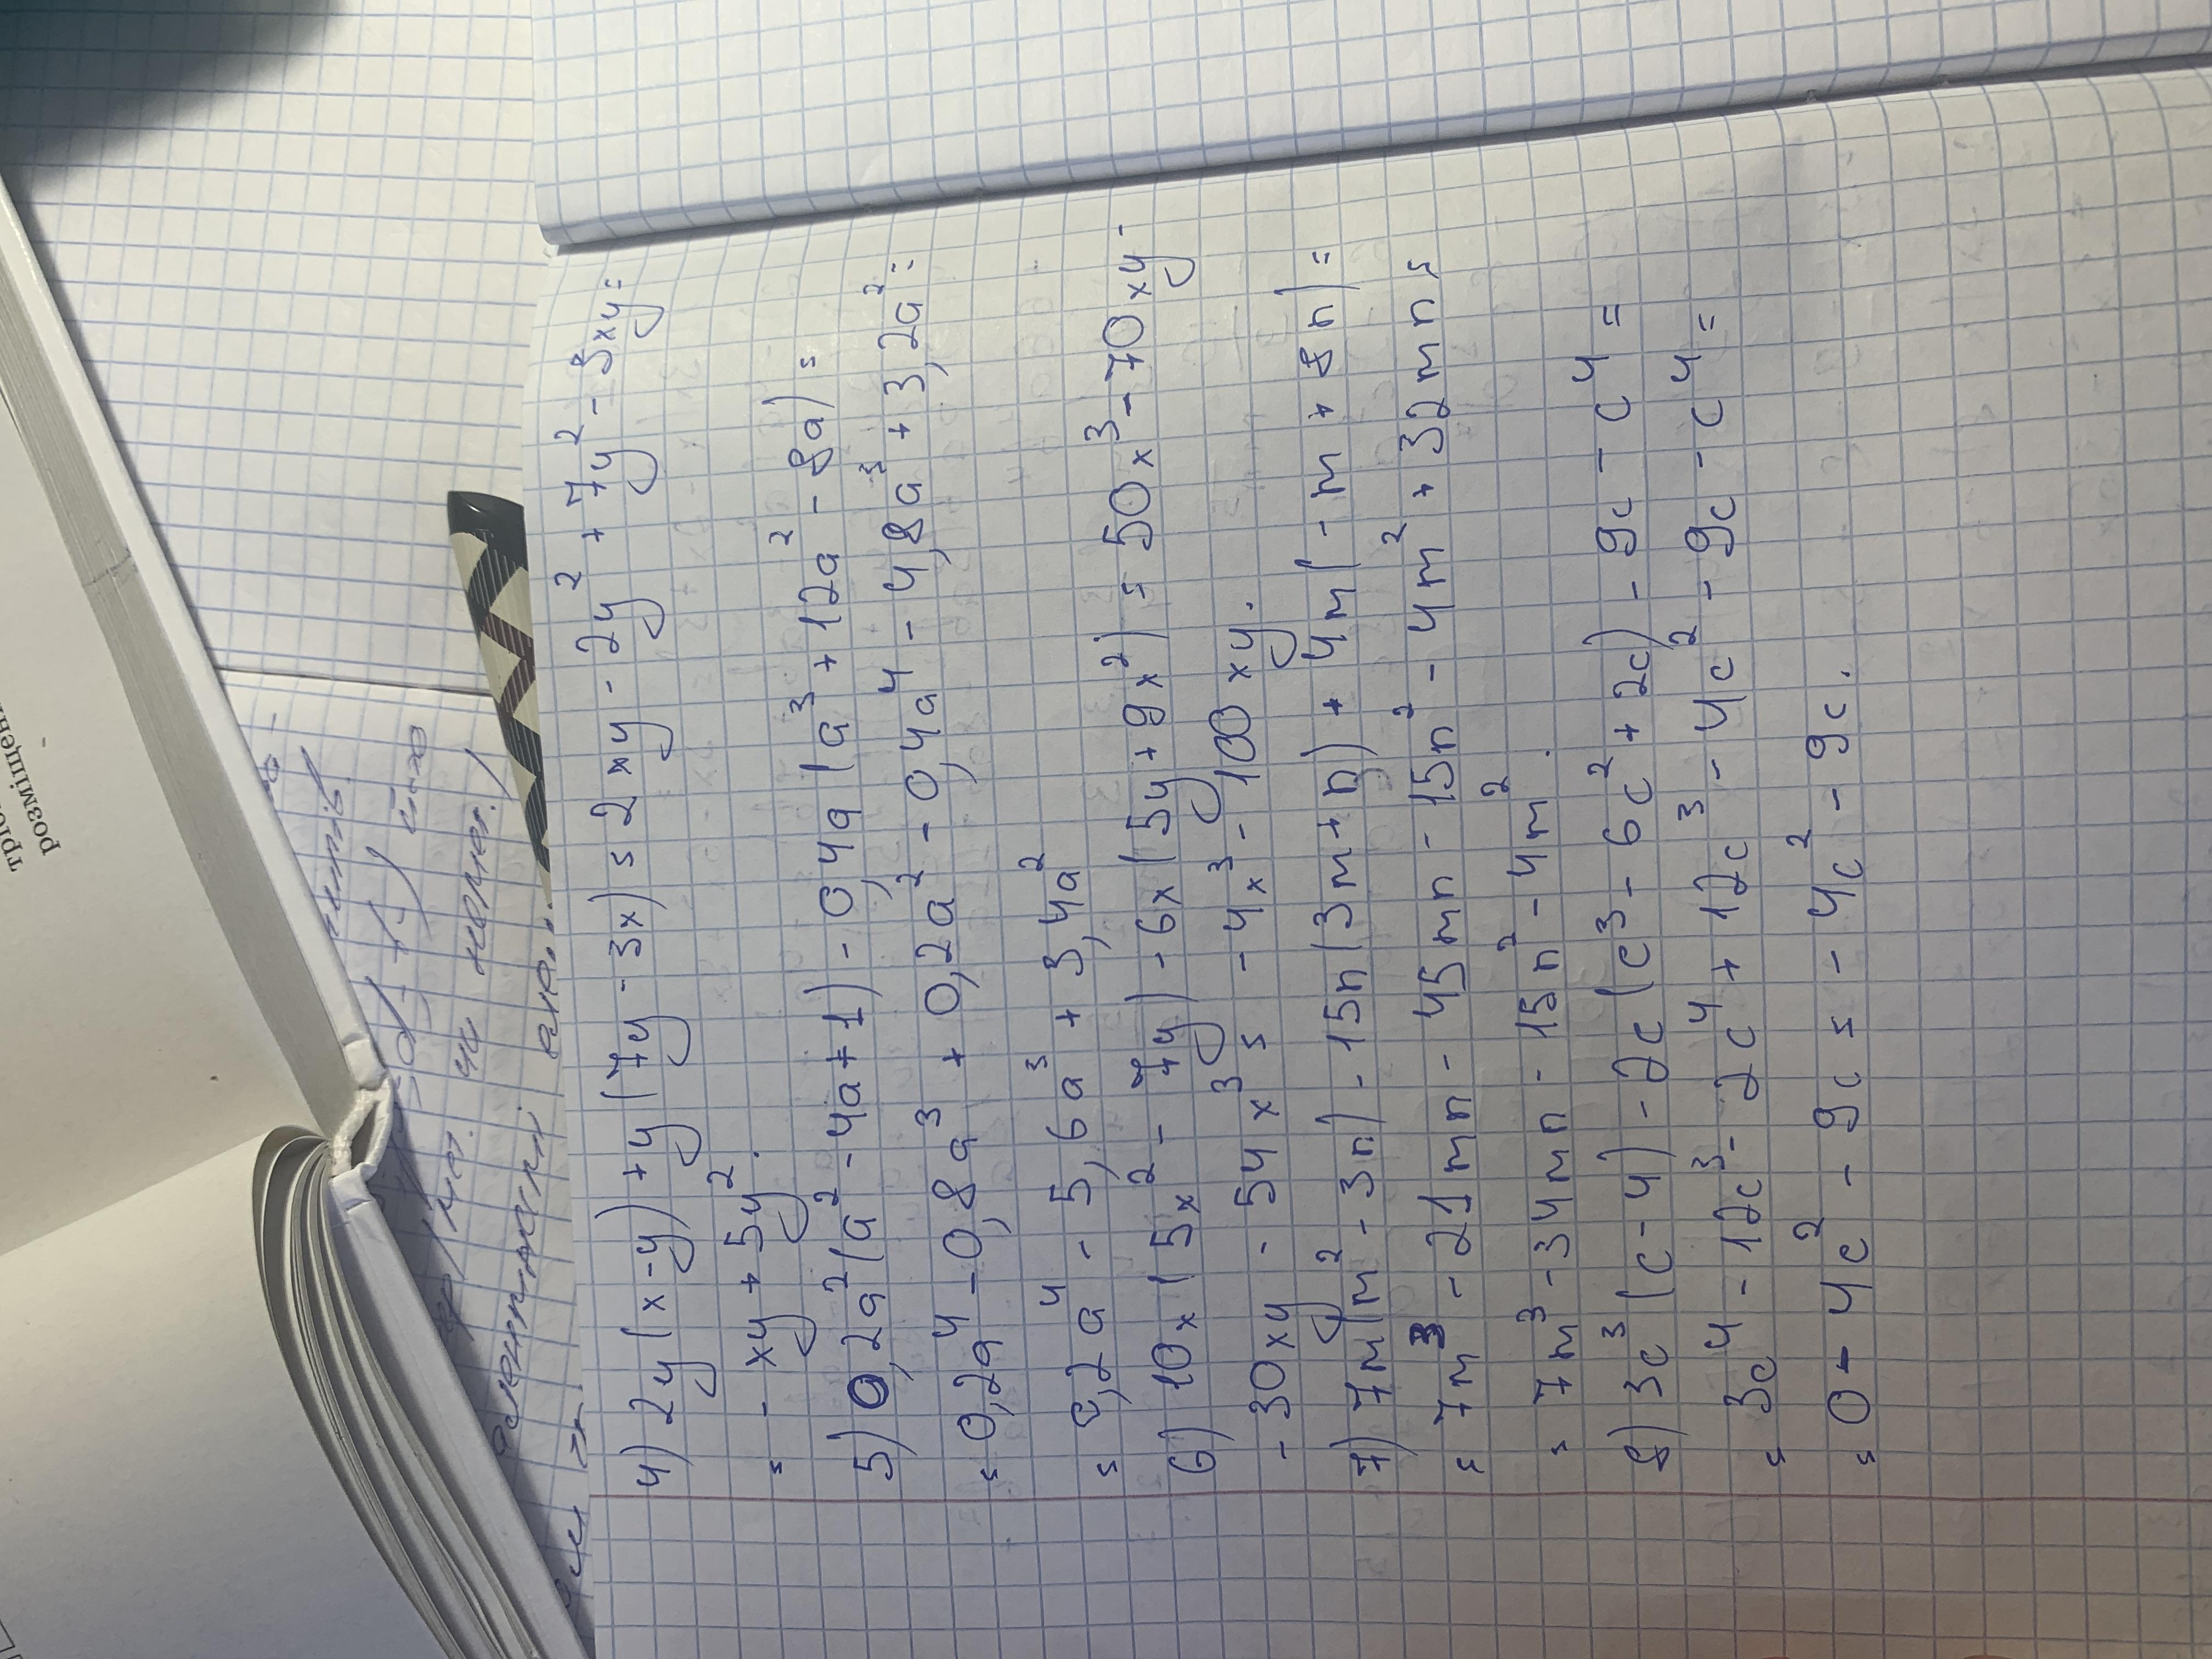 4) 2y(x-y)+y(7y-3x)=2xy-2y²+7y²-3xy=
=-xy+5y².
5) 0,2a²(a²-4a+1)-0,4a(a³+12a²-8a)=
=0,2a⁴-0,8a³+0,2a²-0,4a⁴-4,8a³+3,2a²=
=0,2a⁴-5,6a³+3,4a²
6) 10x(5x²-7y)-6x(5y+9x²)=50x³-70xy-
-30xy-54x³=-4x³-100xy.
7) 7m(m²-3n)-15n(3m+n)+4m(-m+8n)=
=7m³-21mn-45mn-15n²-4m²+32mn=
=7m³-34mn-15n²-4m².
8) 3c³(c-4)-2c(c³-6c²+2c)-9c-c⁴=
=3c⁴-12c³-2c⁴+12c³-4c²-9c-c⁴=
=0-4c²-9c=-4c²-9c.
розміщен